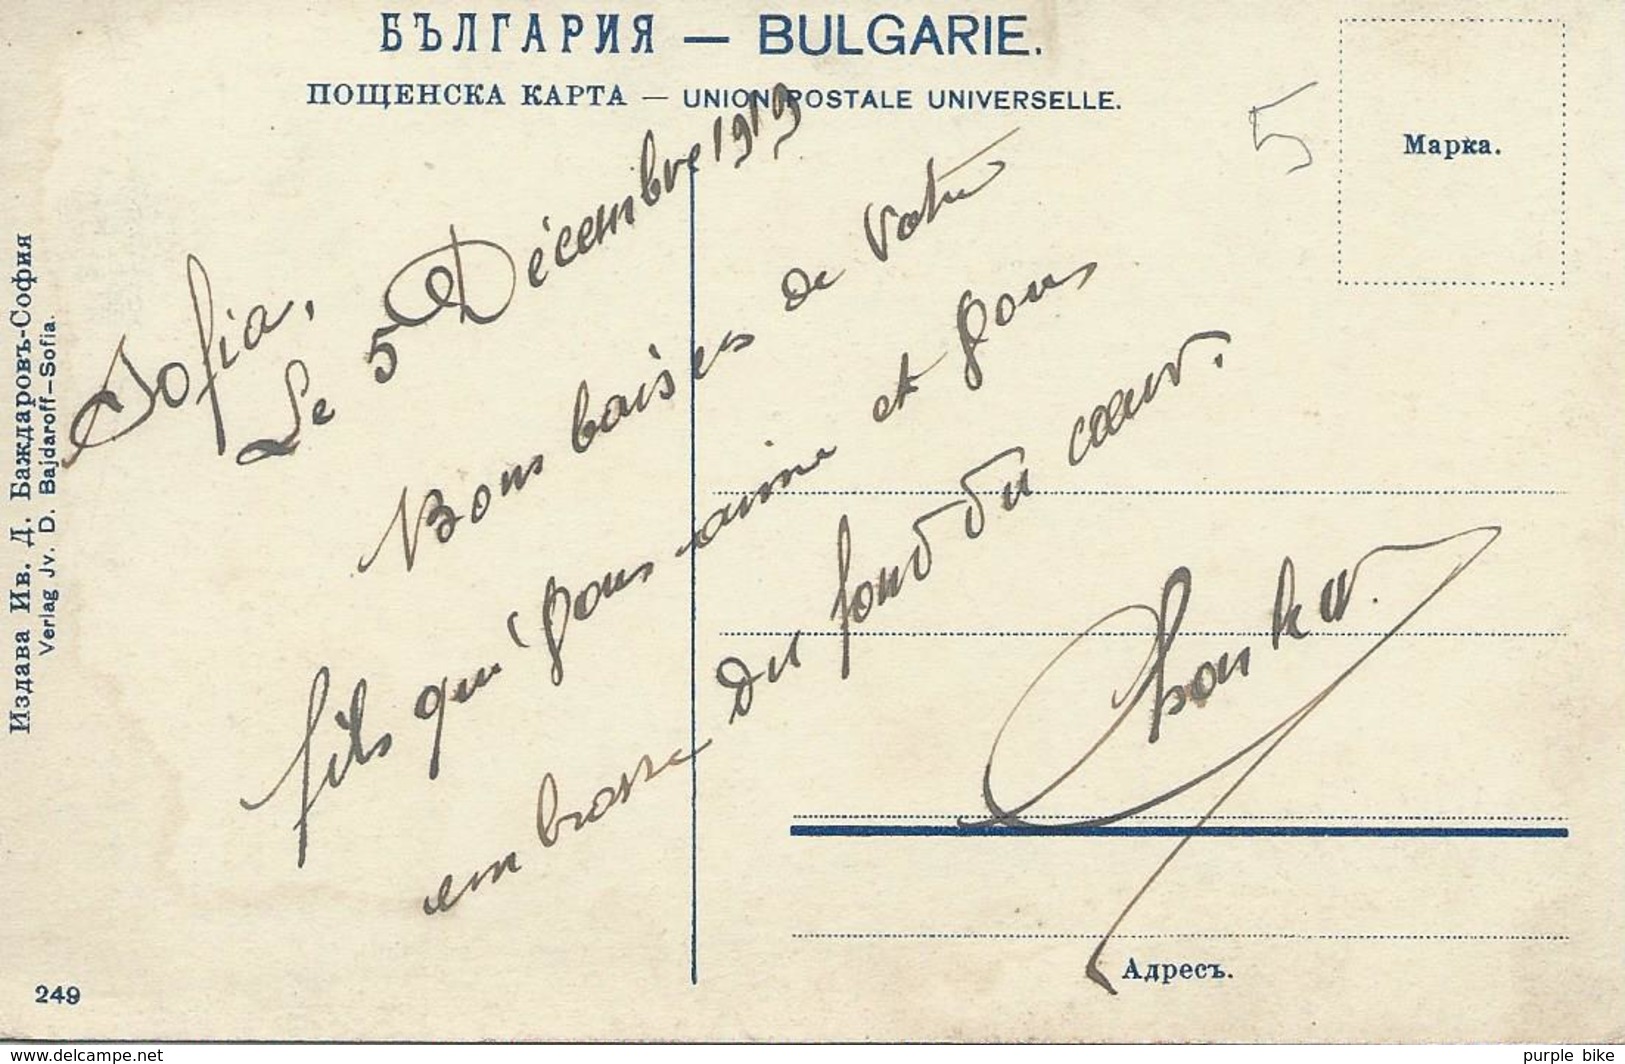 БЪЛГАРИЯ — BULGARIE.
ПОЩЕНСКА КАРТА — UNION POSTALE UNIVERSELLE.
5
Марка.
Sofia,
Le 5 Décembre 1919
Bons baisers de Votre
fils qui Vous aime et Vous
embrasse du fond du cœur.
Адресъ.
Издава Ив. Д. Баждаровъ-София
Verlag Jv. D. Bajdaroff-Sofia.
249
www.delcampe.net
purple bike